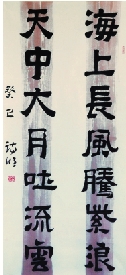 海上長風騰紫浪
天中大月吐流雲
癸巳